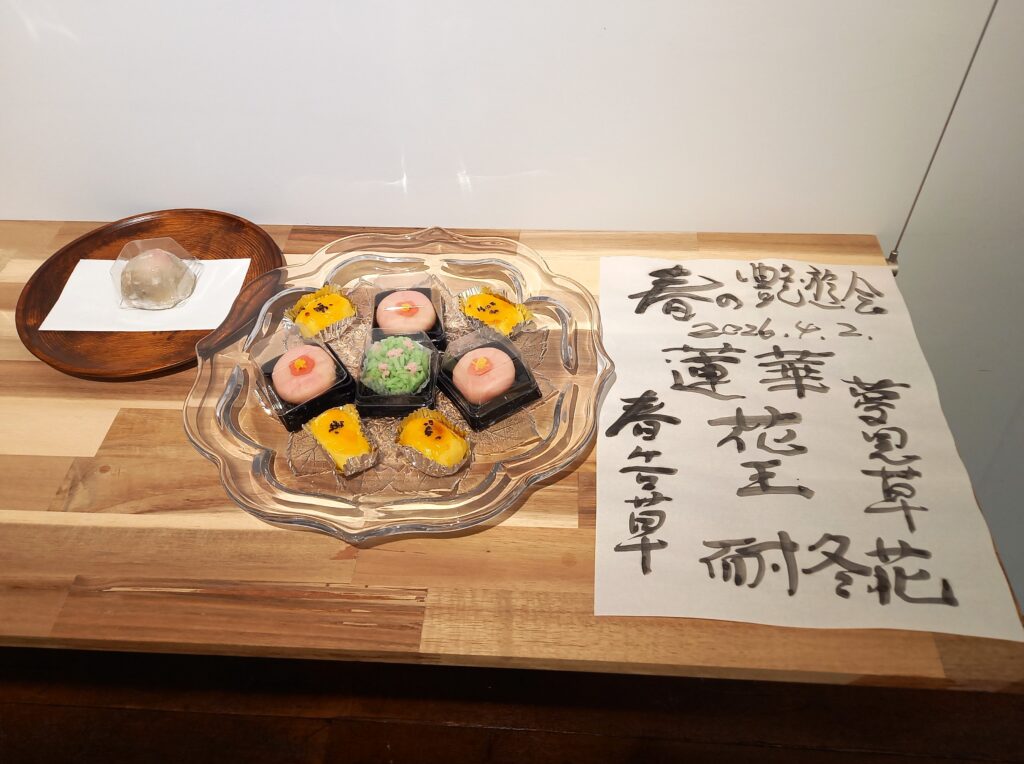 春の艶遊会
2026.4.2.
蓮華
夢見草
花王
春告草
耐冬花